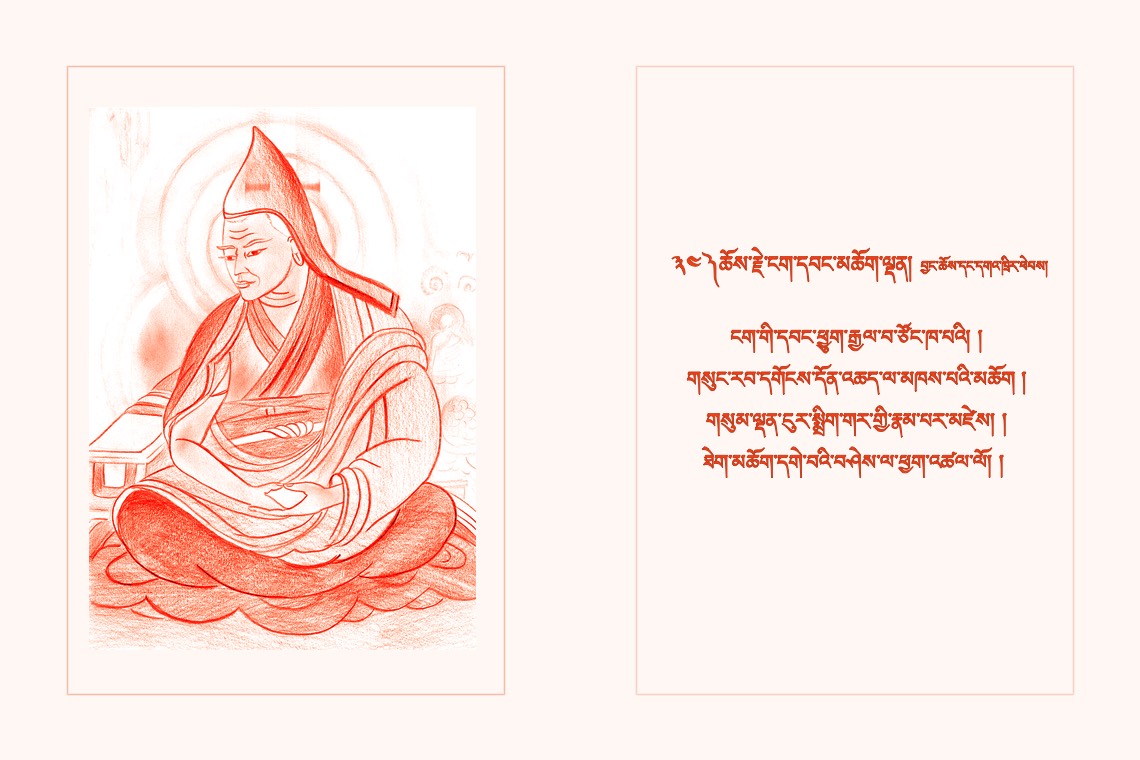 ༣༤༽ ཆོས་རྗེ་ངག་དབང་མཆོག་ལྡན། བྱང་ཆོས་དང་དགའ་ཁྲིར་ཕེབས།
ངག་གི་དབང་ཕྱུག་རྒྱལ་བ་ཙོང་ཁ་པའི། །
གསུང་རབ་དགོངས་དོན་འཆད་ལ་མཁས་པའི་མཆོག །
གསུམ་ལྡན་ངུར་སྨྲིག་གར་གྱི་རྣམ་པར་མཛེས། །
ཐེག་མཆོག་དགེ་བའི་བཤེས་ལ་ཕྱག་འཚལ་ལོ། །